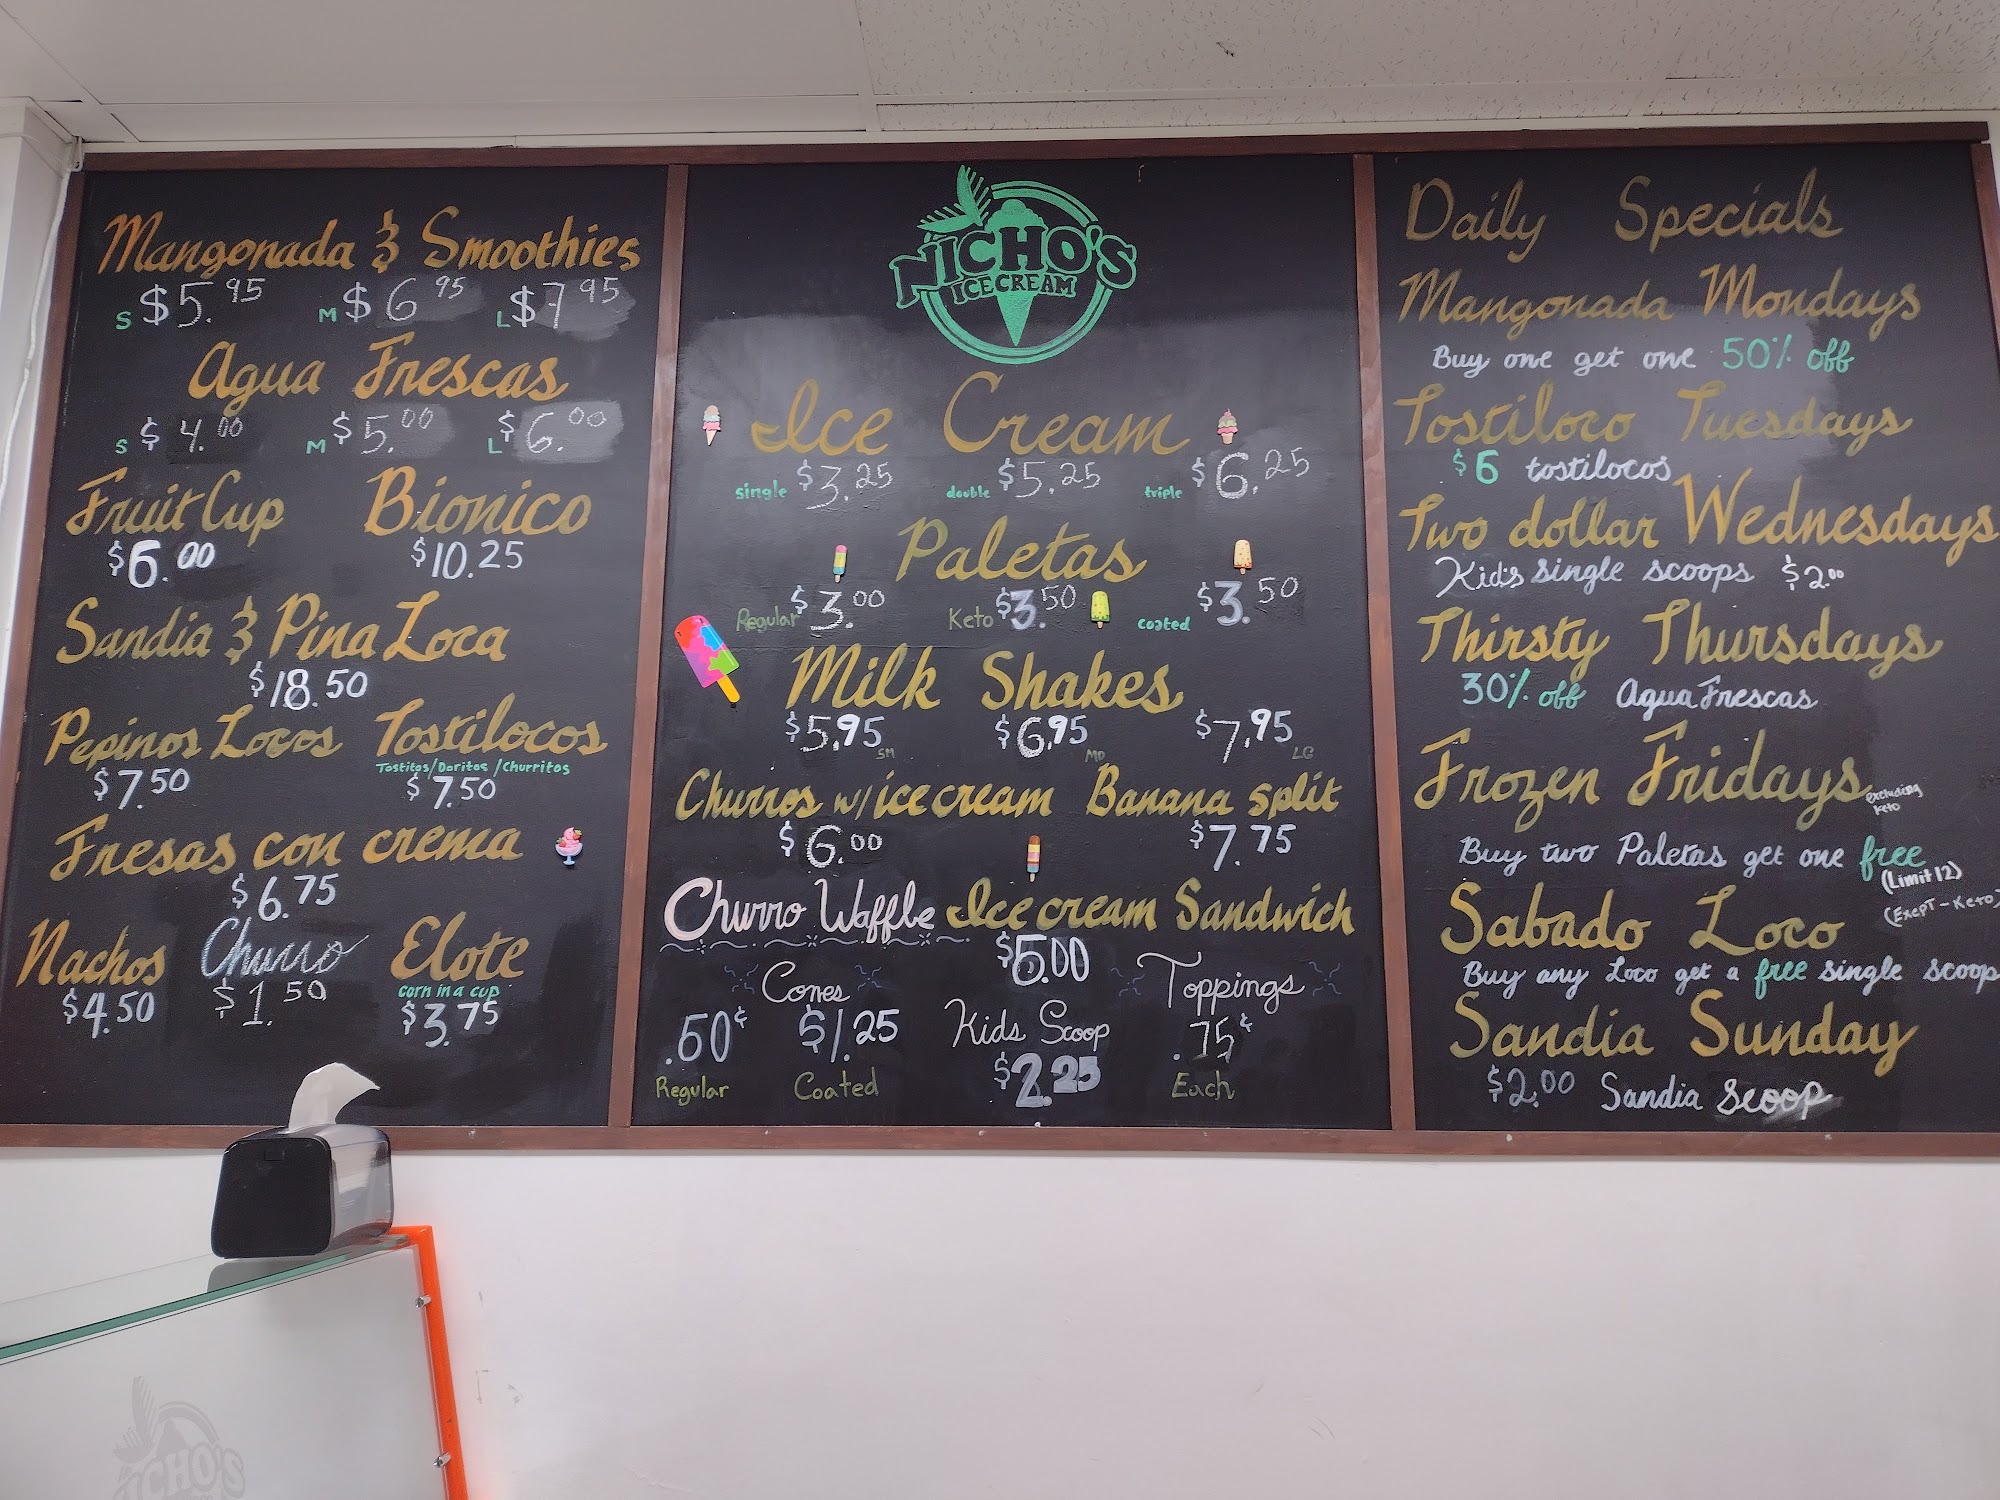 Mangonada & Smoothies
S $5.95 M $6.95 L $7.95
Agua Frescas
S $4.00 M $5.00 L $6.00
Fruit Cup Bionico
$6.00 $10.25
Sandia & Pina Loca
$18.50
Pepinos Locos Tostilocos
Tostitos/Doritos/Churritos
$7.50 $7.50
Fresas con crema
$6.75
Nachos Churro Elote
corn in a cup
$4.50 $1.50 $3.75
NICHO'S
ICE CREAM
Ice Cream
single $3.25 double $5.25 triple $6.25
Paletas
Regular $3.00 Keto $3.50 coated $3.50
Milk Shakes
$5.95 SM $6.95 MD $7.95 LG
Churros w/ ice cream Banana split
$6.00 $7.75
Churro Waffle Ice cream Sandwich
$6.00
Cones Toppings
.60¢ $1.25 Kids Scoop .75¢
Regular Coated $2.25 Each
Daily Specials
Mangonada Mondays
Buy one get one 50% off
Tostiloco Tuesdays
$6 tostilocos
Two dollar Wednesdays
Kid's single scoops $2.00
Thirsty Thursdays
30% off Agua Frescas
Frozen Fridays
excluding
keto
Buy two Paletas get one free
(Limit 12)
(Exept-Keto)
Sabado Loco
Buy any Loco get a free single scoop
Sandia Sunday
$2.00 Sandia Scoop
NICHO'S